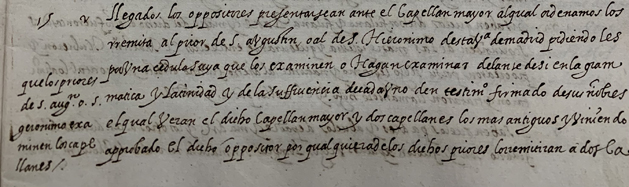 15 llegados los oppositores presentarsean ante el Capellan mayor alqual ordenamos los
rremita al prior de S. augustin, o al de S. Hieronimo desta vª de madrid pidiendoles
por vna cedula suya que los examinen o Hagan examinar delante de si en la gram
matica y latinidad y de la sufficiencia de cada vno den testimº firmado de sus nōbres
el qual veran el dicho Capellan mayor y dos capellanes los mas antiguos y viniendo
approbado el dicho oppositor por qualquiera de los dichos priores lo rremitiran a dos ca
que los priores
de S. augⁿ. o. S.
geronimo exa
minen los cape
llanes /.